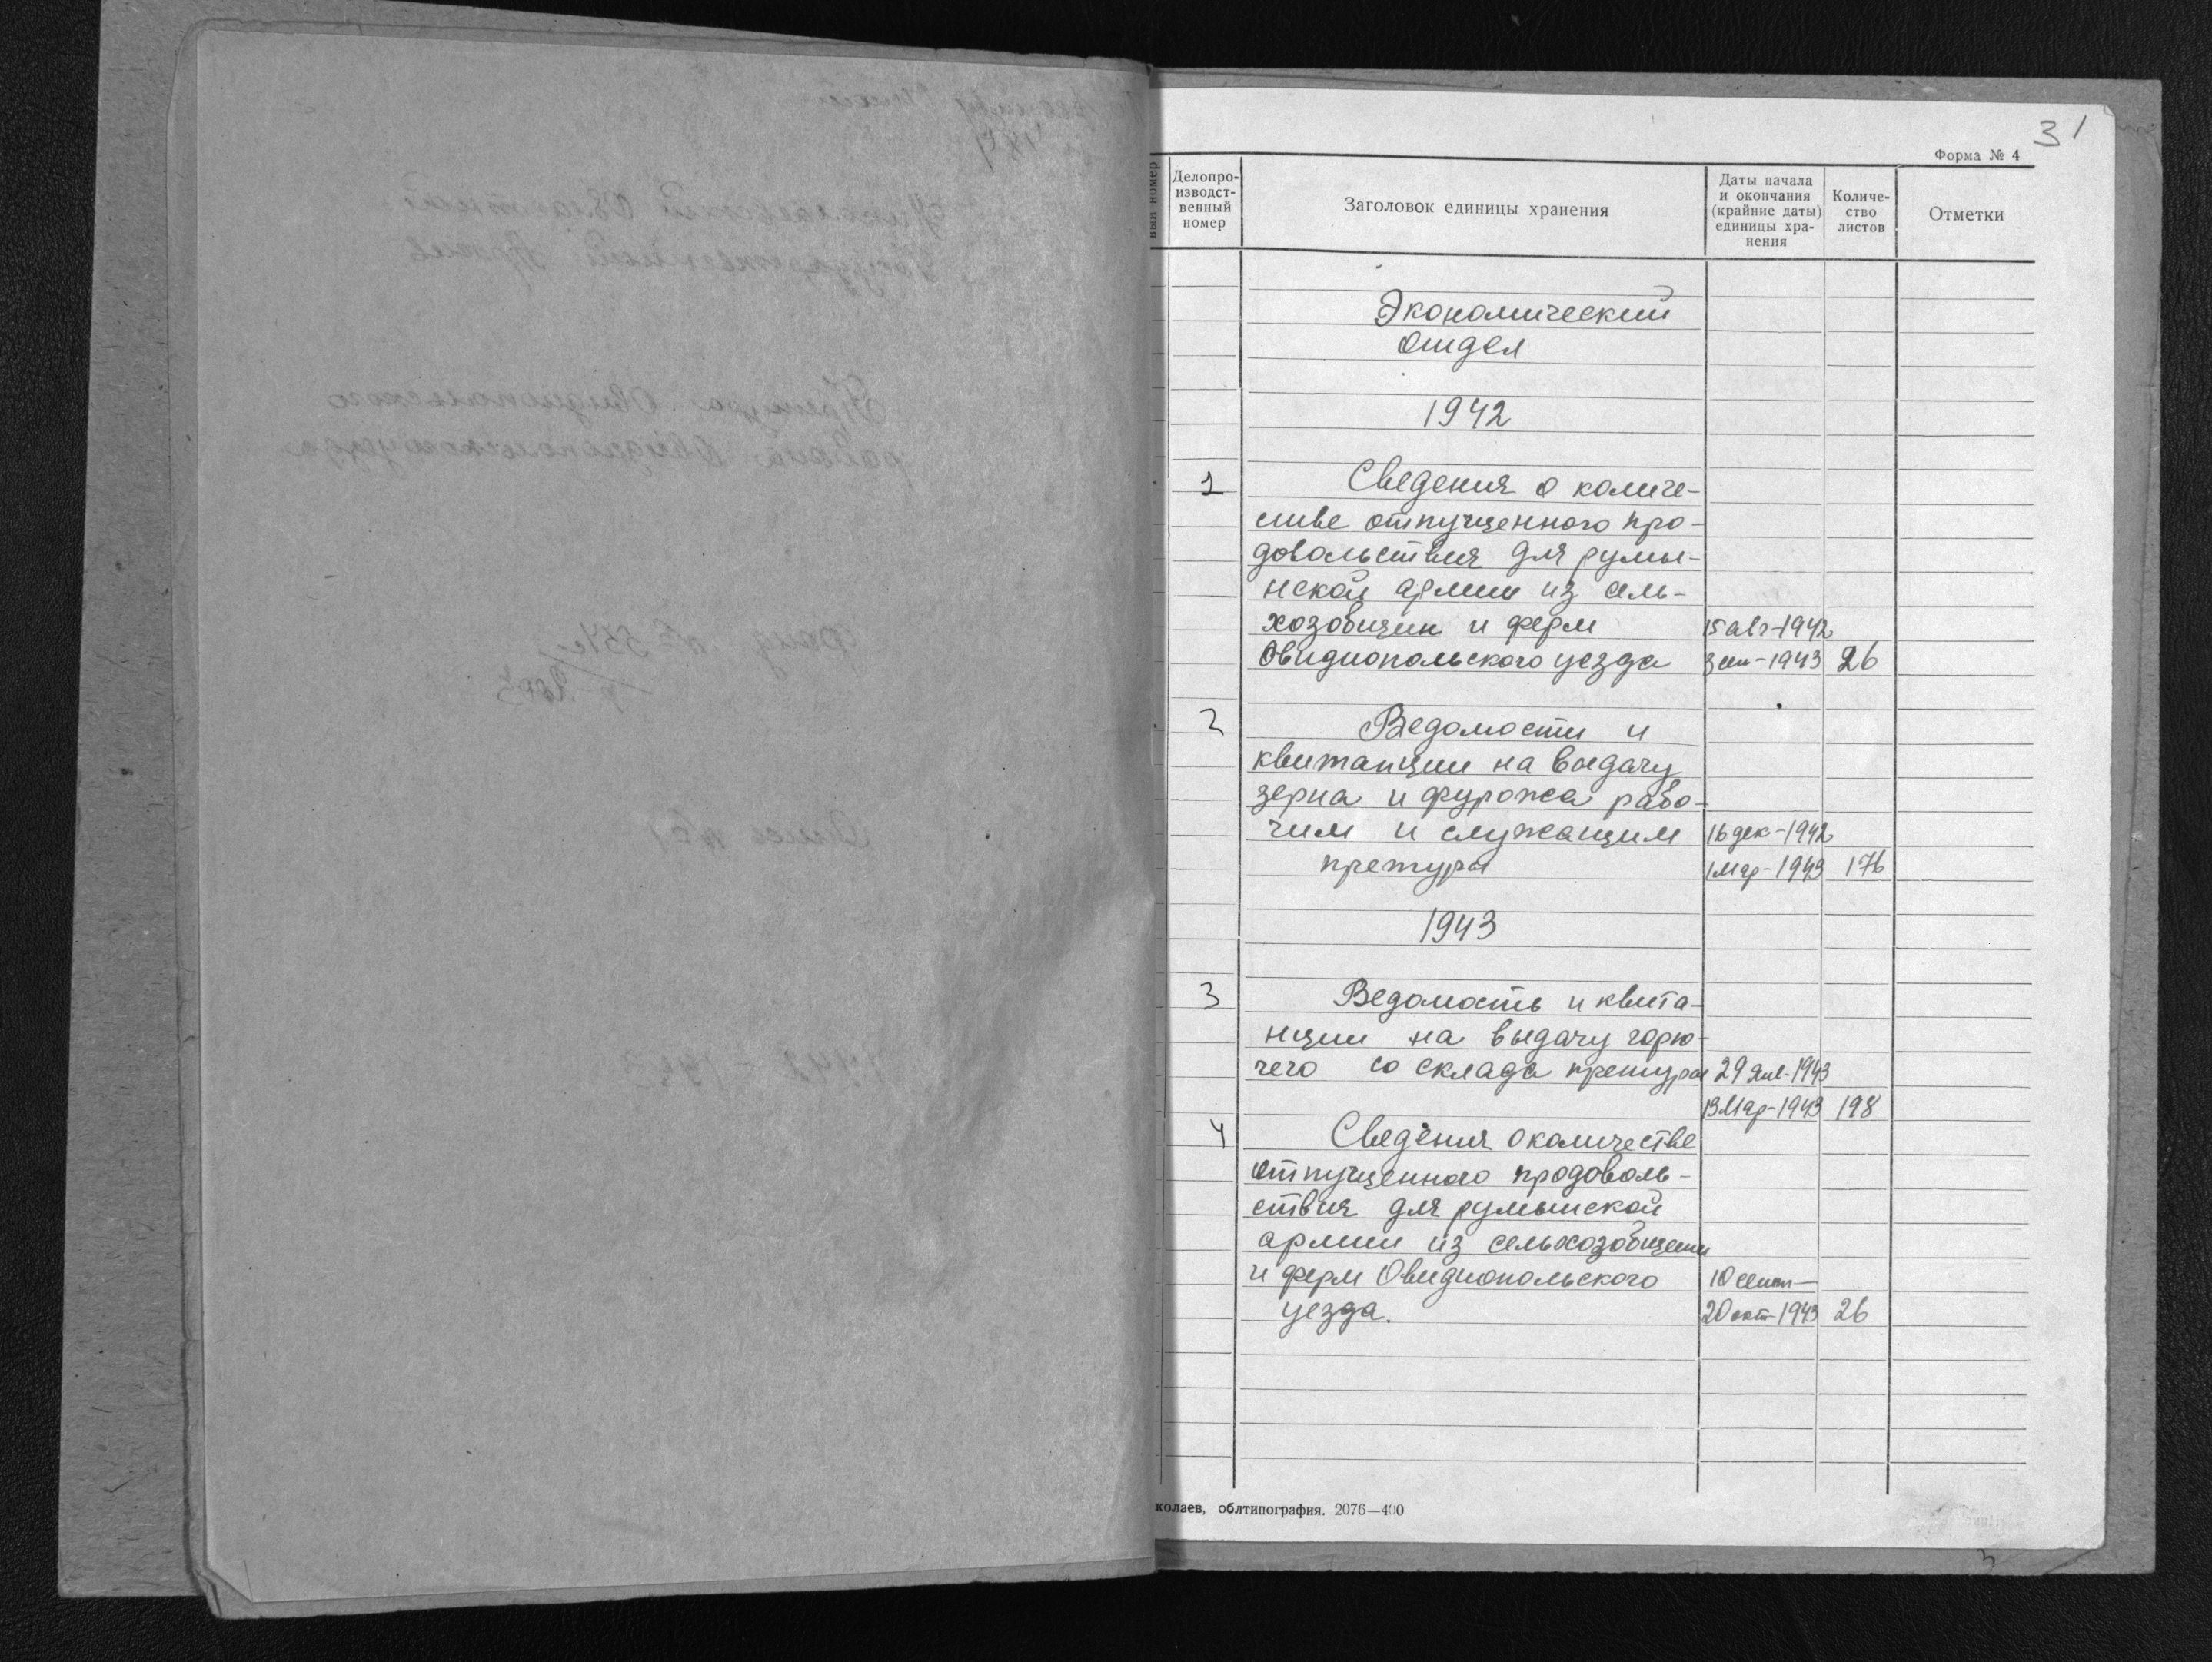 31
Форма № 4
Делопро-
изводст-
венный
номер
Заголовок единицы хранения
Даты начала
и окончания
(крайние даты)
единицы хра-
нения
Количе-
ство
листов
Отметки
Экономический
отдел
1942
1 Сведения о количе-
стве отпущенного про-
довольствия для румы-
нской армии из сель-
хозобщин и ферм 15 авг-1942
Овидиопольского уезда 3 сен-1943 26
2 Ведомости и
квитанции на выдачу
зерна и фуража рабо-
чим и служащим 16 дек-1942
претуры 1 мар-1943 176
1943
3 Ведомость и квита-
нции на выдачу горю-
чего со склада претуры 29 янв-1943
13 мар-1943 198
4 Сведения о количестве
отпущенного продоволь-
ствия для румынской
армии из сельхозобщин
и ферм Овидиопольского 10 сент-
уезда. 20 окт-1943 26
колаев, облтипография. 2076—400
3